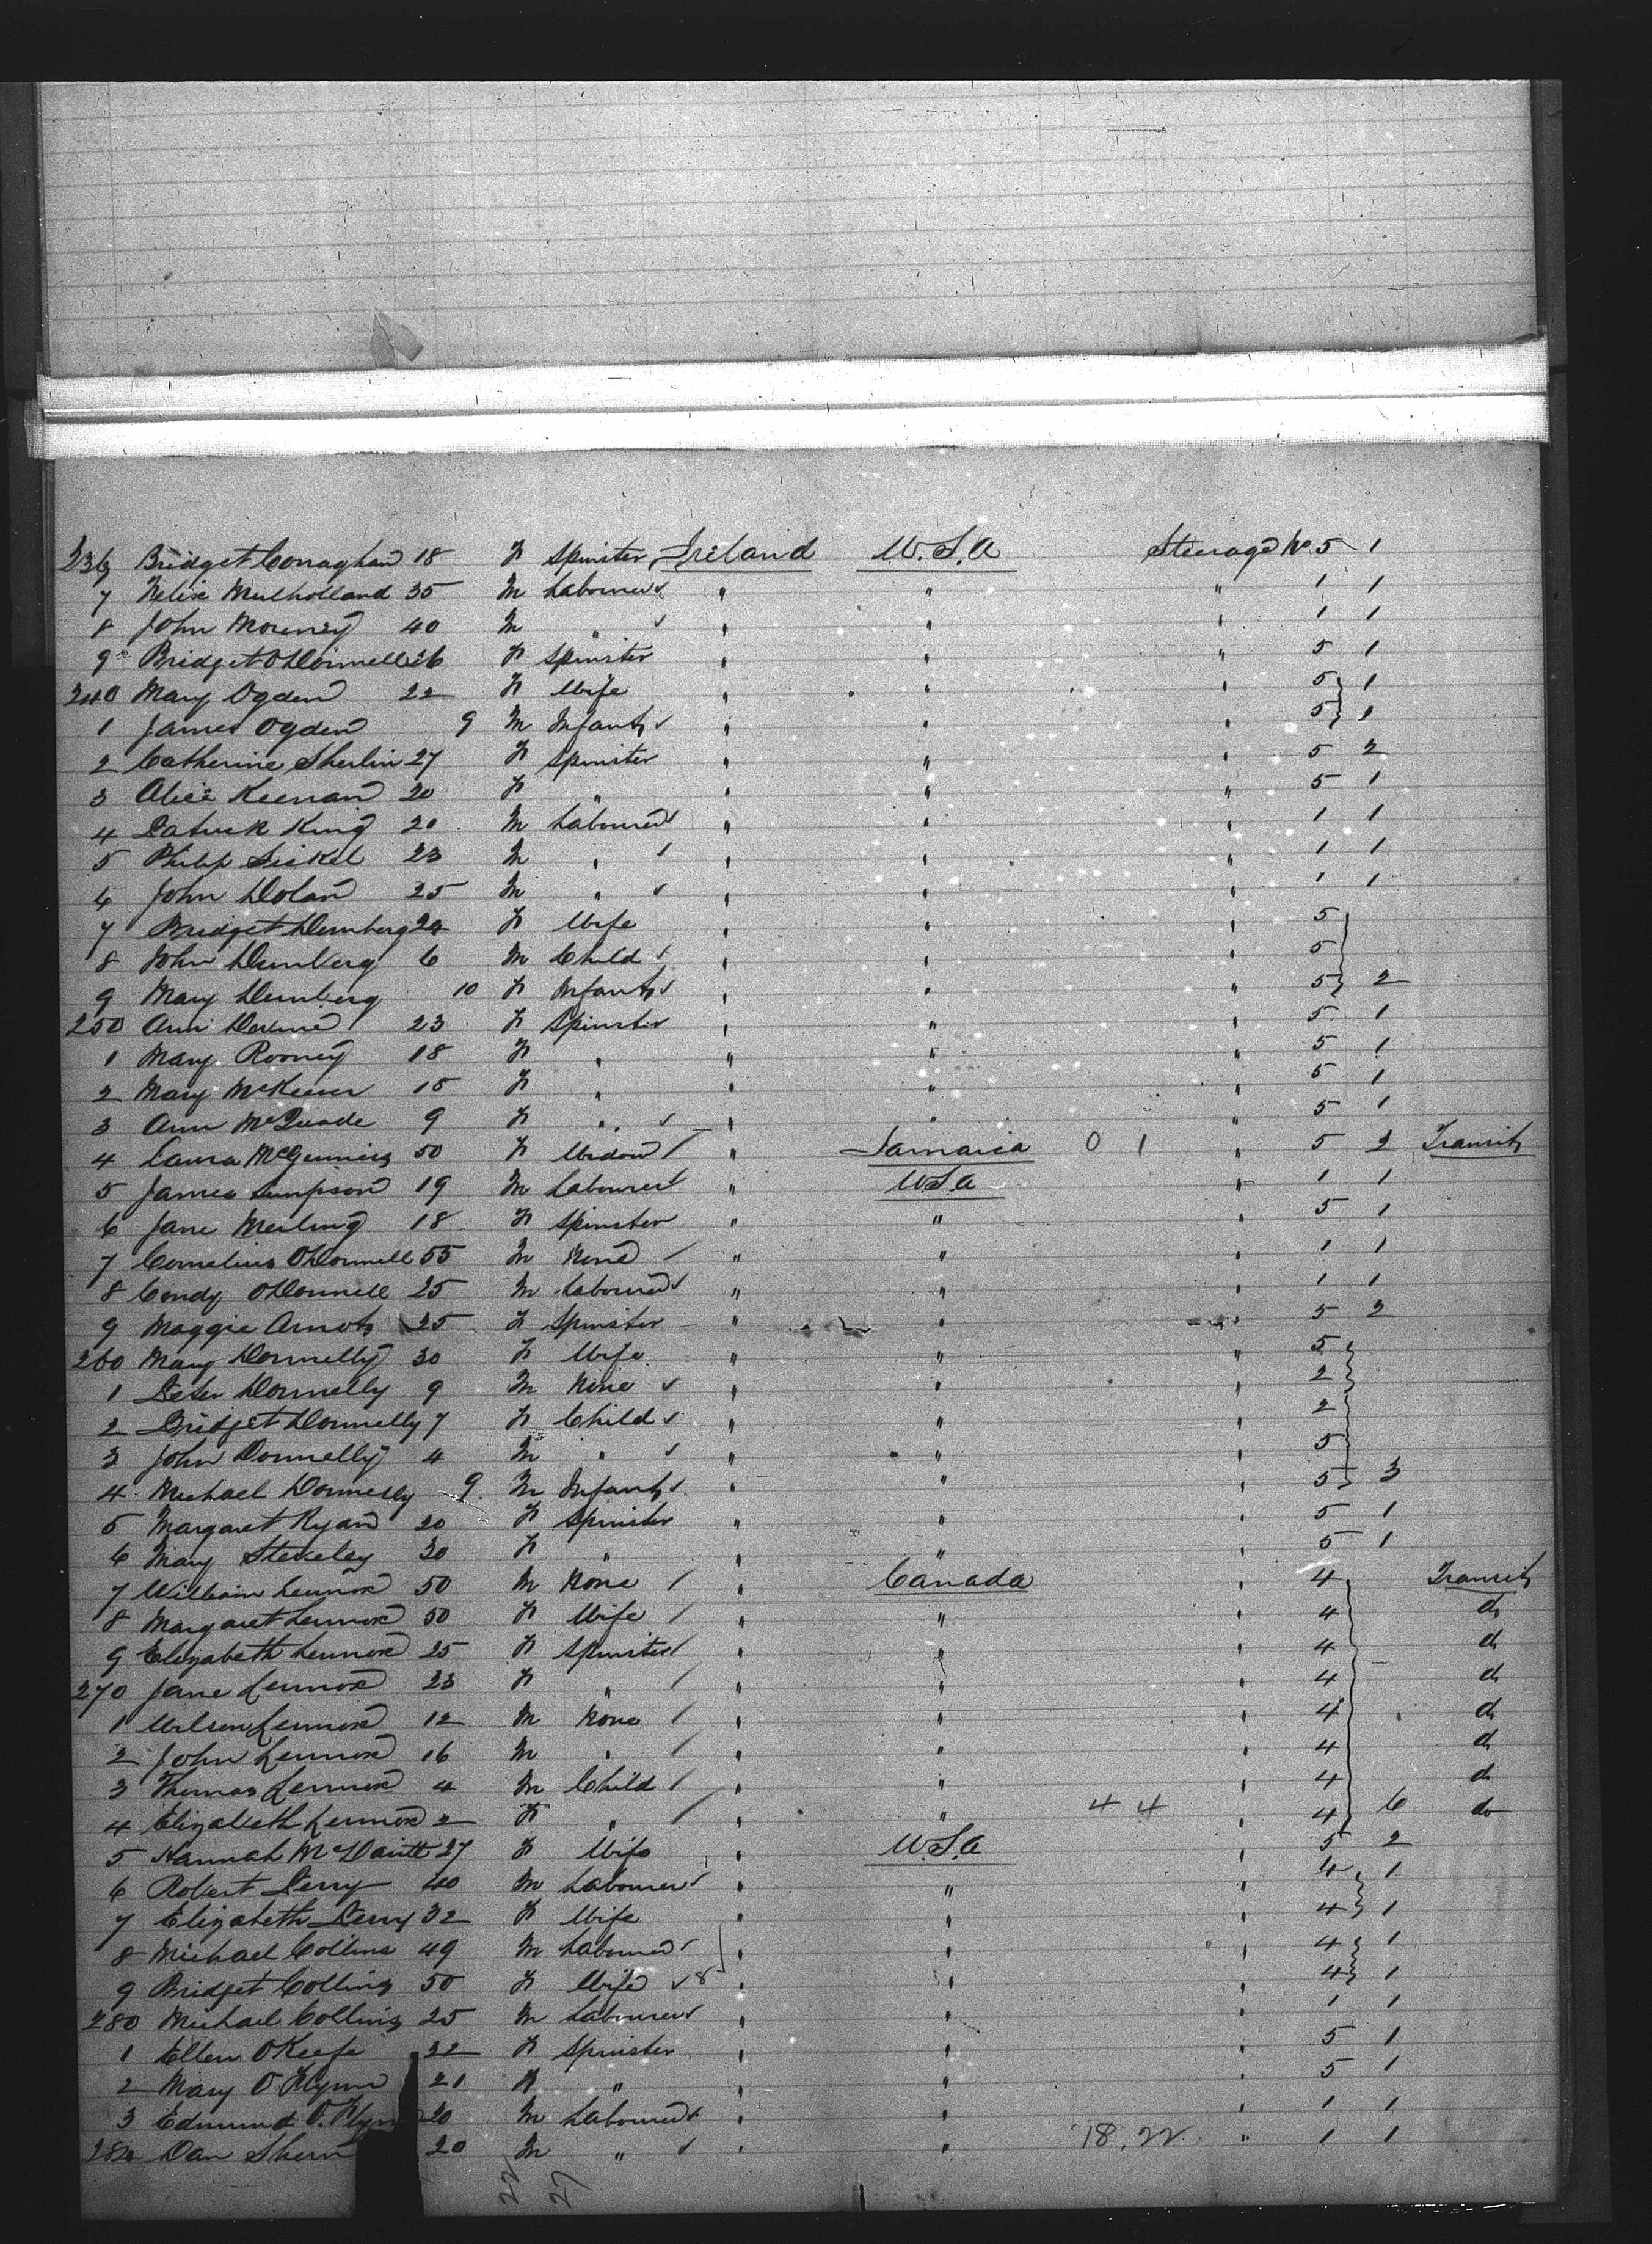 236 Bridget Conaghan 18 F Spinster Ireland U.S.A Steerage No 5 1
7 Felix Mulholland 35 M Labourer " " " 1 1
8 John 40 M " " " " 1 1
9 Bridget O'Donnell 26 F Spinster " " " 5 1
240 Mary Ogden 22 F Wife " " " 5 1
1 James Ogden 9 M Infant " " " 5 1
2 Catherine Sherlin 27 F Spinster " " " 5 2
3 Alice Keenan 20 F " " " " 5 1
4 Patrick King 20 M Labourer " " " 1 1
5 Philip 23 M " " " " 1 1
6 John Dolan 25 M " " " " 1 1
7 Bridget 24 F Wife " " " 5
8 John 6 M Child " " " 5
9 Mary 10 F Infant " " " 5 2
250 Ann Devine 23 F Spinster " " " 5 1
1 Mary Rooney 18 F " " " " 5 1
2 Mary McKeever 18 F " " " " 5 1
3 Ann McQuade 9 F " " " " 5 1
4 50 F Widow " Jamaica 0 1 " 5 2 Transit
5 James Simpson 19 M Labourer " U.S.A " 1 1
6 Jane 18 F Spinster " " " 5 1
7 Cornelius O'Donnell 55 M None " " " 1 1
8 Condy O'Donnell 25 M Labourer " " " 1 1
9 Maggie Arnott 25 F Spinster " " " 5 2
260 Mary Donnelly 30 F Wife " " " 5
1 Peter Donnelly 9 M None " " " 2
2 Bridget Donnelly 7 F Child " " " 2
3 John Donnelly 4 M " " " " 5
4 Michael Donnelly 9 M Infant " " " 5 3
5 Margaret Ryan 20 F Spinster " " " 5 1
6 Mary 30 F " " " " 5 1
7 William Lennox 50 M None " Canada " 4 Transit
8 Margaret Lennox 50 F Wife " " " 4 do
9 Elizabeth Lennox 25 F Spinster " " " 4 do
270 Jane Lennox 23 F " " " " 4 do
1 Wilson Lennox 12 M None " " " 4 do
2 John Lennox 16 M " " " " 4 do
3 Thomas Lennox 4 M Child " " " 4 do
4 Elizabeth Lennox 2 F " " " 4 4 " 4 6 do
5 Hannah McDavitt 27 F Wife " U.S.A " 5 2
6 Robert Perry 40 M Labourer " " " 4 1
7 Elizabeth Perry 32 F Wife " " " 4 1
8 Michael Collins 49 M Labourer " " " 4 1
9 Bridget Collins 50 F Wife 8 " " " 4 1
280 Michael Collins 25 M Labourer " " " 1 1
1 Ellen O'Keefe 22 F Spinster " " " 5 1
2 Mary O'Flynn 21 F " " " " 5 1
3 Edmund O. 20 M Labourer " " " 1 1
284 Dan 20 M " " " 18.22 " 1 1
22 27